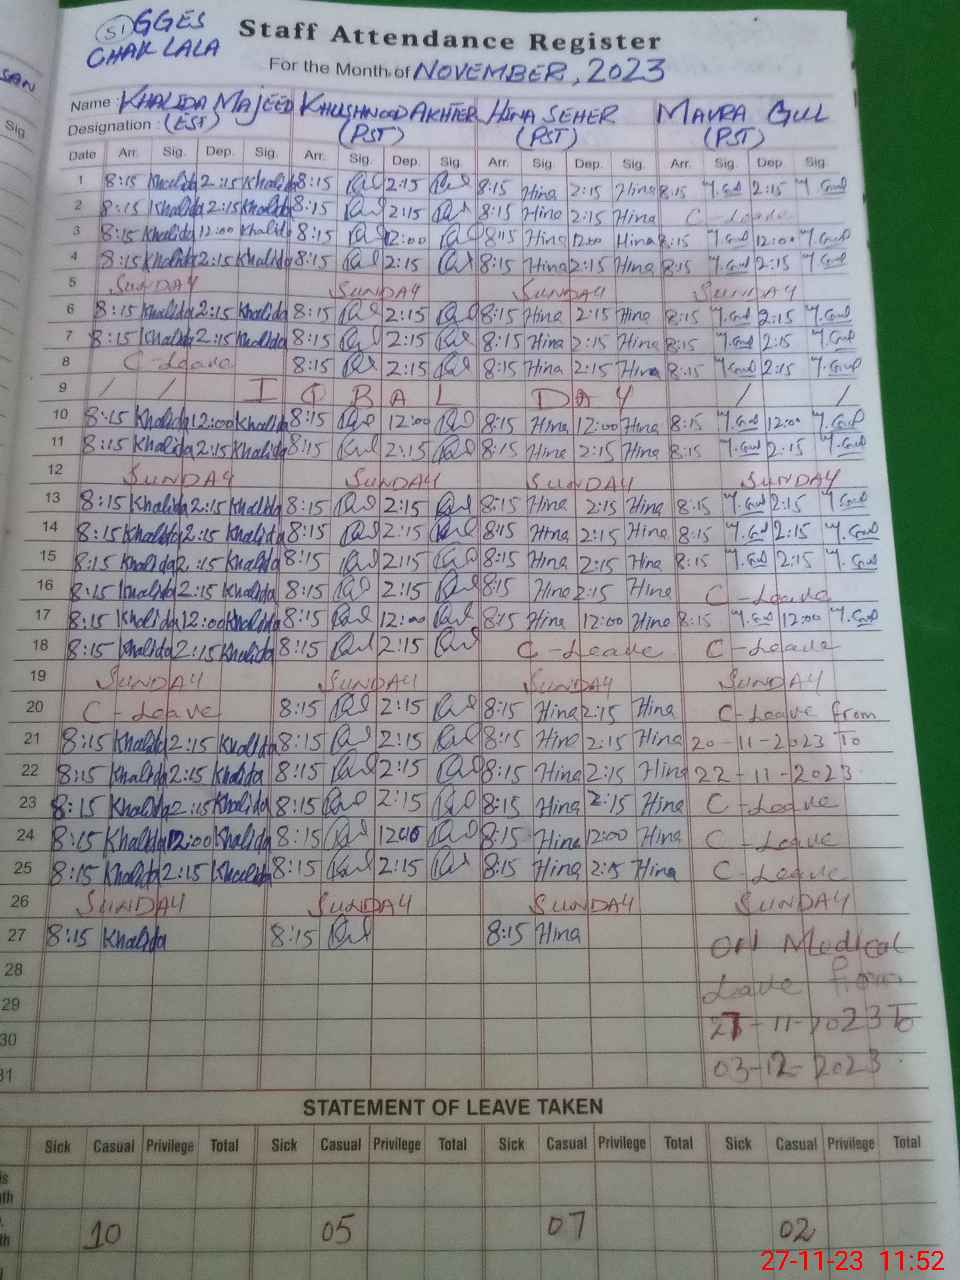 51 GGES
CHAKLALA
Staff Attendance Register
For the Month of NOVEMBER, 2023
SAN
Sig
Name : KHALIDA MAJEED KHUSHNOOD AKHTER HINA SEHER MAVRA GULL
Designation : (EST) (PST) (PST) (PST)
Date Arr. Sig. Dep. Sig. Arr. Sig. Dep. Sig. Arr. Sig Dep. Sig. Arr. Sig Dep. Sig.
1 8:15 Khalida 2:15 Khalida 8:15 2:15 8:15 Hina 2:15 Hina 8:15 M.Gul 2:15 M Gul
2 8:15 Khalida 2:15 Khalida 8:15 2:15 8:15 Hina 2:15 Hina C-Leave
3 8:15 Khalida 12:00 Khalida 8:15 12:00 8:15 Hina 12:00 Hina 8:15 M.Gul 12:00 M.Gul
4 8:15 Khalida 2:15 Khalida 8:15 2:15 8:15 Hina 2:15 Hina 8:15 M.Gul 2:15 M.Gul
5 SUNDAY SUNDAY SUNDAY SUNDAY
6 8:15 Khalida 2:15 Khalida 8:15 2:15 8:15 Hina 2:15 Hina 8:15 M.Gul 2:15 M.Gul
7 8:15 Khalida 2:15 Khalida 8:15 2:15 8:15 Hina 2:15 Hina 8:15 M.Gul 2:15 M.Gul
8 C-Leave 8:15 2:15 8:15 Hina 2:15 Hina 8:15 M.Gul 2:15 M.Gul
9 / / IQBAL DAY / /
10 8:15 Khalida 12:00 Khalida 8:15 12:00 8:15 Hina 12:00 Hina 8:15 M.Gul 12:00 M.Gul
11 8:15 Khalida 2:15 Khalida 8:15 2:15 8:15 Hina 2:15 Hina 8:15 M.Gul 2:15 M.Gul
12 SUNDAY SUNDAY SUNDAY SUNDAY
13 8:15 Khalida 2:15 Khalida 8:15 2:15 8:15 Hina 2:15 Hina 8:15 M.Gul 2:15 M.Gul
14 8:15 Khalida 2:15 Khalida 8:15 2:15 8:15 Hina 2:15 Hina 8:15 M.Gul 2:15 M.Gul
15 8:15 Khalida 2:15 Khalida 8:15 2:15 8:15 Hina 2:15 Hina 8:15 M.Gul 2:15 M.Gul
16 8:15 Khalida 2:15 Khalida 8:15 2:15 8:15 Hina 2:15 Hina C-Leave
17 8:15 Khalida 12:00 Khalida 8:15 12:00 8:15 Hina 12:00 Hina 8:15 M.Gul 12:00 M.Gul
18 8:15 Khalida 2:15 Khalida 8:15 2:15 C-Leave C-Leave
19 SUNDAY SUNDAY SUNDAY SUNDAY
20 C-Leave 8:15 2:15 8:15 Hina 2:15 Hina C-Leave from
21 8:15 Khalida 2:15 Khalida 8:15 2:15 8:15 Hina 2:15 Hina 20-11-2023 To
22 8:15 Khalida 2:15 Khalida 8:15 2:15 8:15 Hina 2:15 Hina 22-11-2023.
23 8:15 Khalida 2:15 Khalida 8:15 2:15 8:15 Hina 2:15 Hina C-Leave
24 8:15 Khalida 12:00 Khalida 8:15 1200 8:15 Hina 12:00 Hina C-Leave
25 8:15 Khalida 2:15 Khalida 8:15 2:15 8:15 Hina 2:15 Hina C-Leave
26 SUNDAY SUNDAY SUNDAY SUNDAY
27 8:15 Khalida 8:15 8:15 Hina On Medical
28 Leave from
29 27-11-2023 To
30 03-12-2023.
31
STATEMENT OF LEAVE TAKEN
Sick Casual Privilege Total Sick Casual Privilege Total Sick Casual Privilege Total Sick Casual Privilege Total
10 05 07 02
27-11-23 11:52